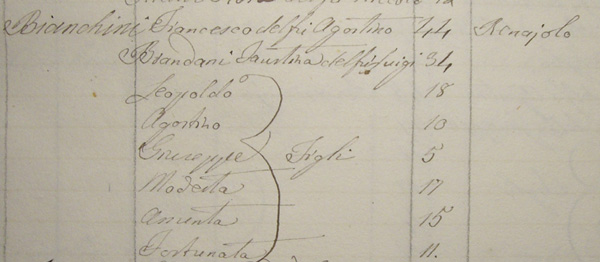 Bianchini Francesco del fu Agostino 44 Renajolo
Brandani Faustina del fu Luigi 34
Leopoldo 18
Agostino 10
Giuseppe Figli 5
Modesta 17
Assunta 15
Fortunata 11.